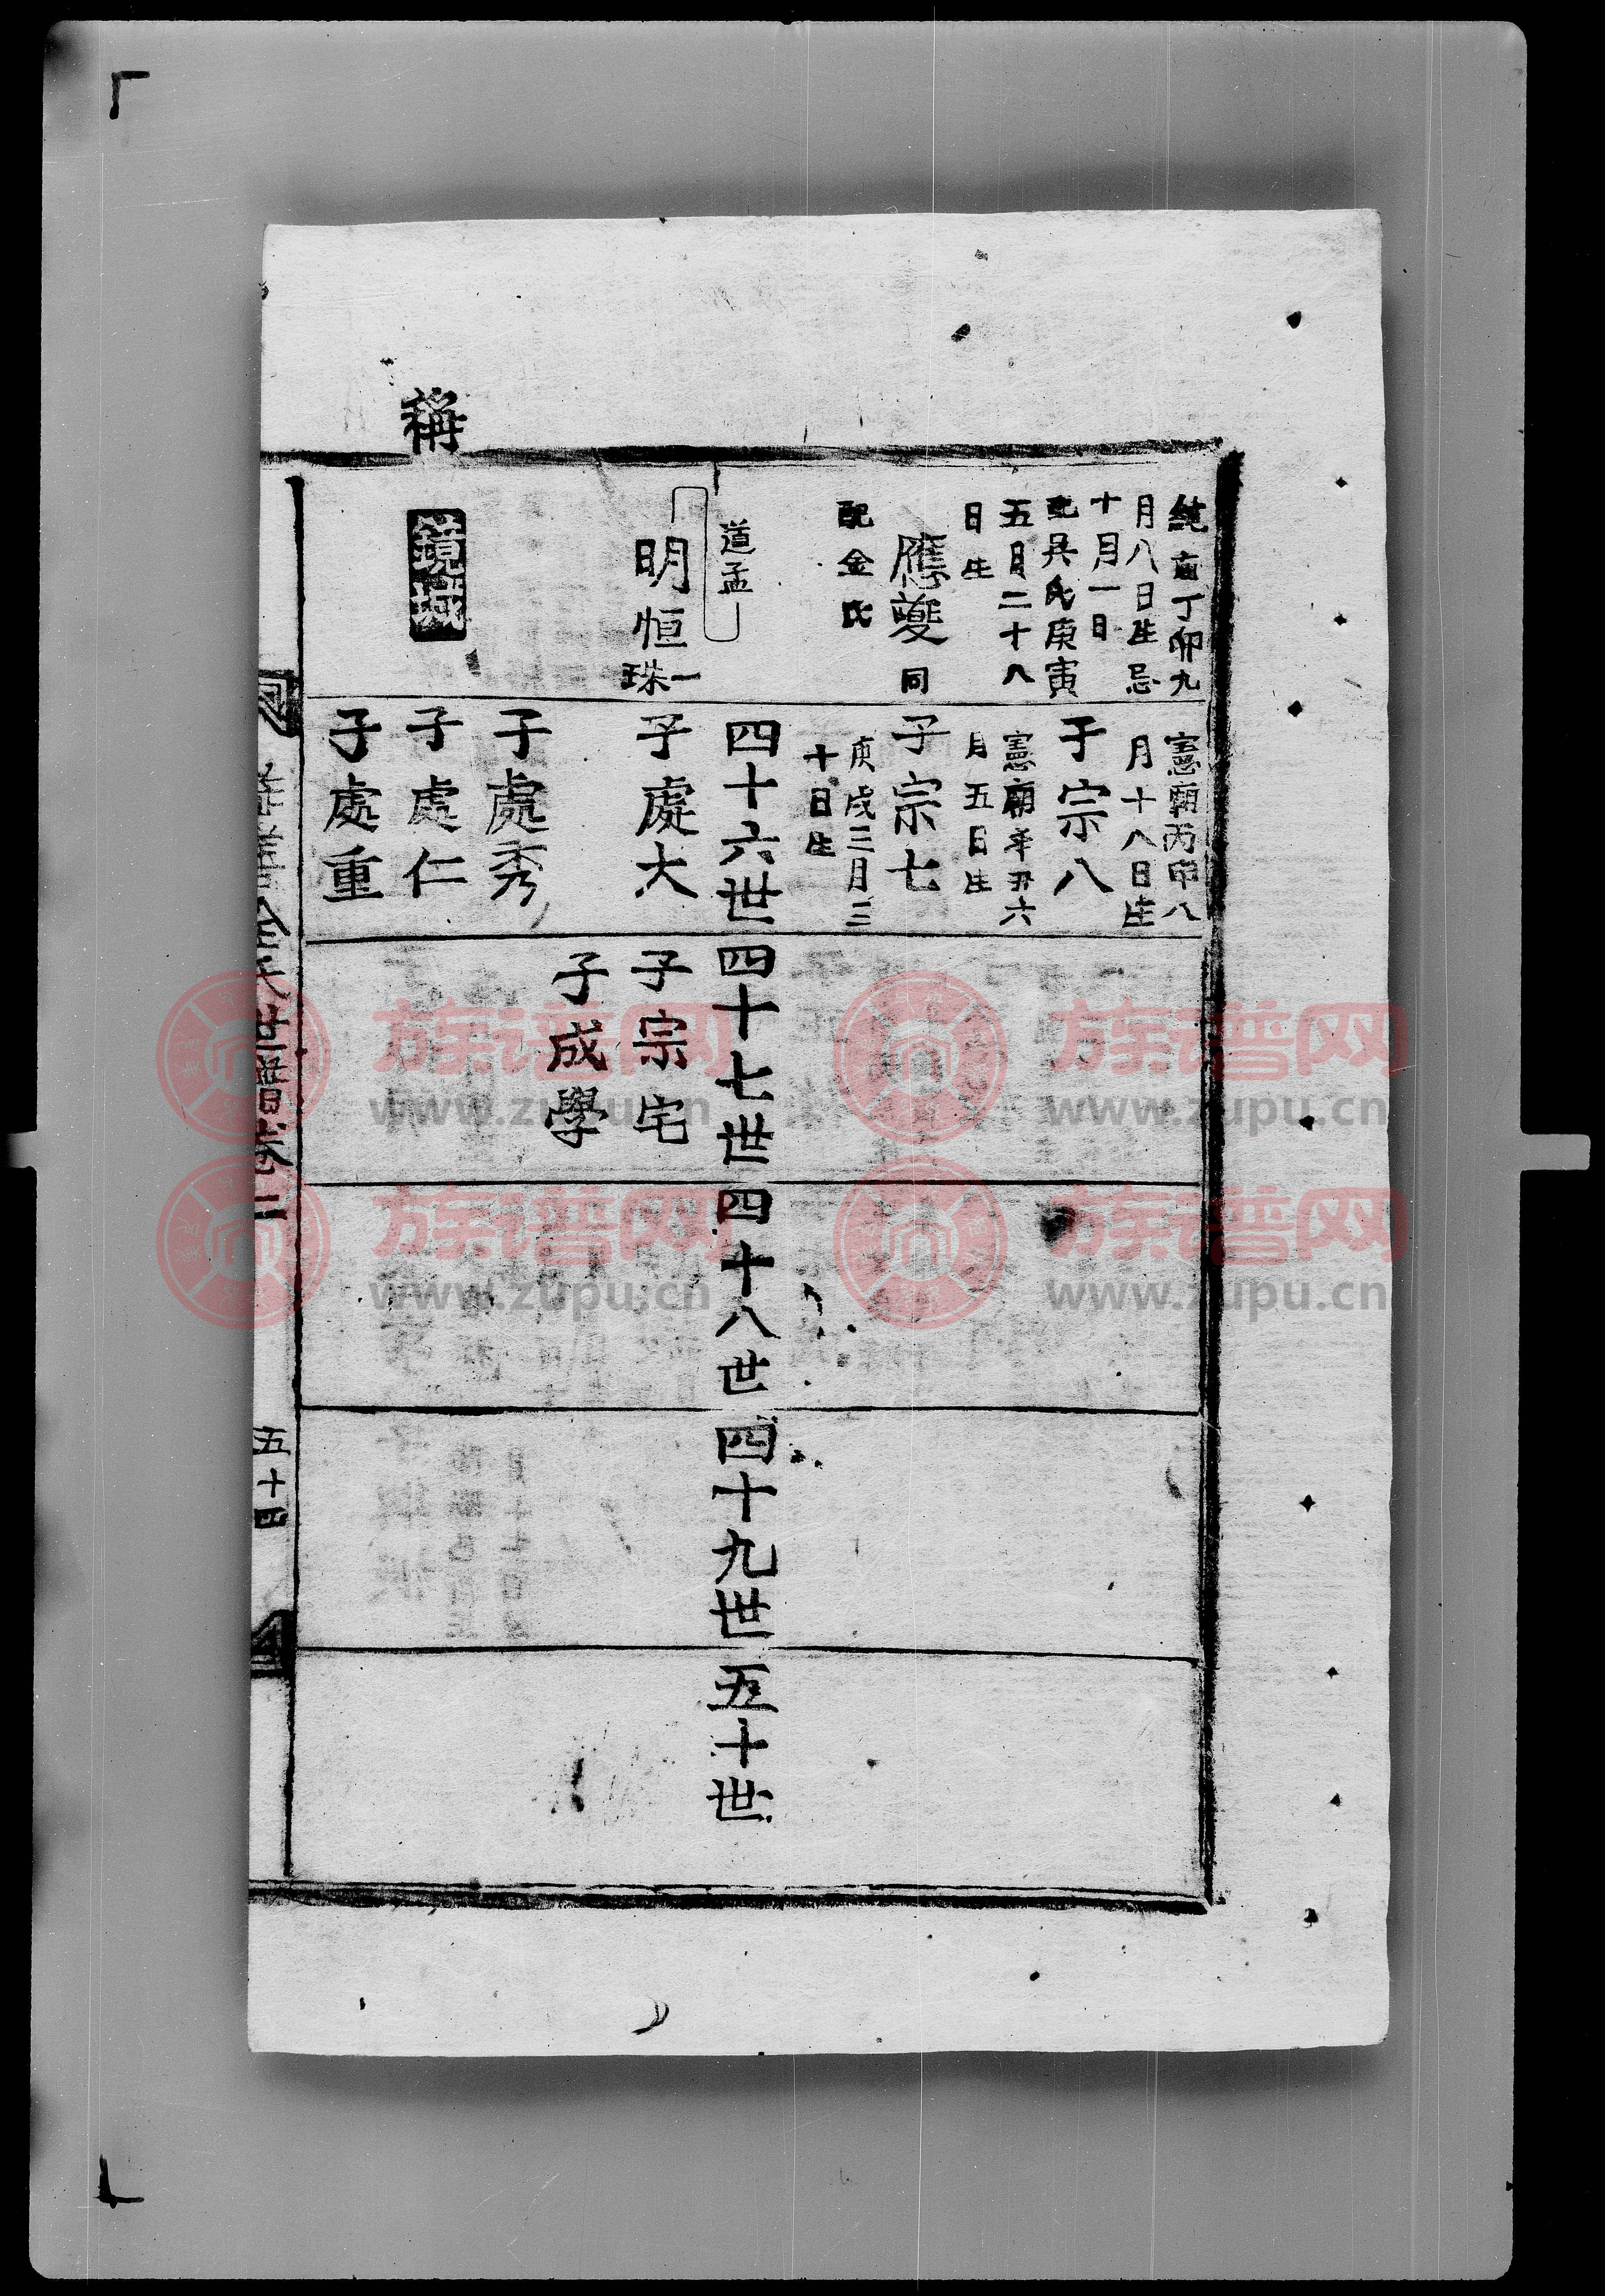 純廟丁卯九
月八日生忌
十月一日
配吳氏庚寅
五月二十八
日生
應夔同
配金氏
憲廟丙申八
月十八日生
子宗八
憲廟辛丑六
月五日生
子宗七
庚戌三月二
十日生
道孟
四十六世
四十七世
四十八世
四十九世
五十世
明恒一珠
子處大
子宗宅
子成學
子處秀
稱
鏡城
子處仁
子處重
金氏世譜卷二
五十四
族谱网
www.zupu.cn
族谱网
www.zupu.cn
族谱网
www.zupu.cn
族谱网
www.zupu.cn